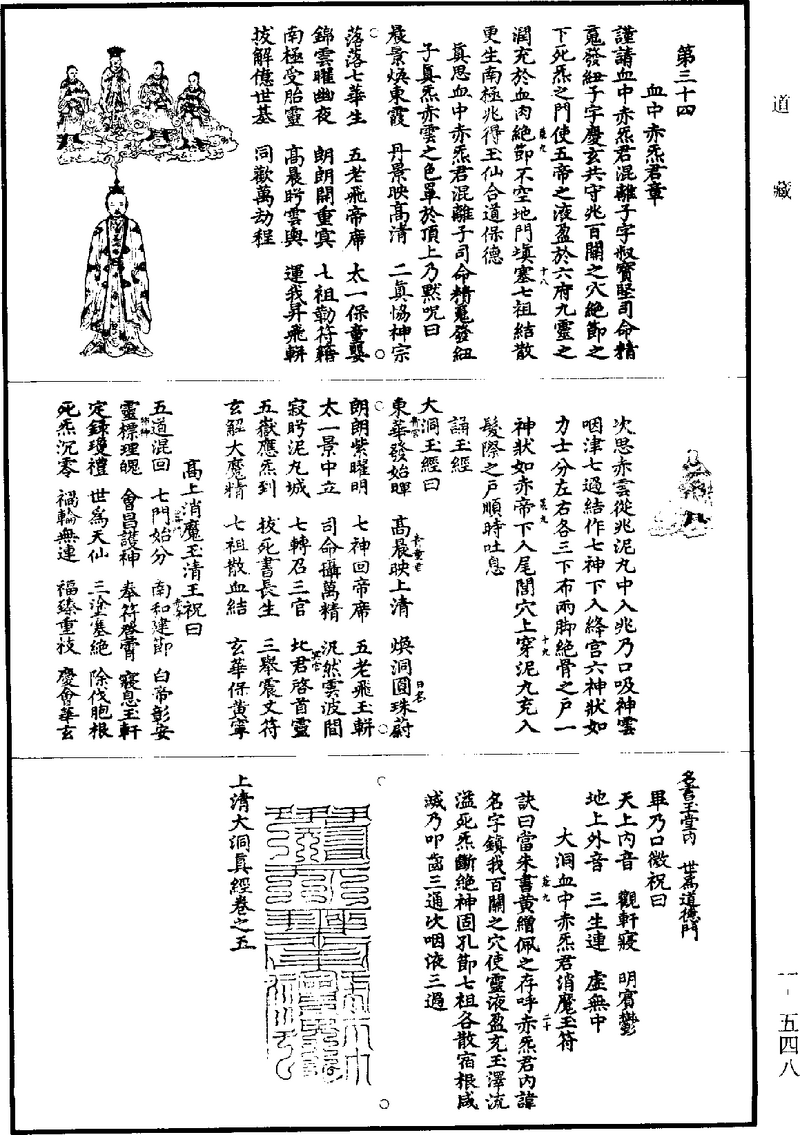 道藏
第三十四
血中赤炁君章
謹請血中赤炁君混離子字叔寶堅司命精
䰟發紐子字慶玄共守兆百關之穴絕節之
下死炁之門使五帝之液盈於六府九靈之
潤充於血肉絕節不空地門塡塞七祖結散
更生南極兆得王仙合道保德
真思血中赤炁君混離子司命精䰟發紐
子真炁赤雲之色罩於頂上乃默呪曰
晨景煥東霞 丹景映高清 二真恊神宗
落落七華生 五老飛帝席 太一保童嬰
錦雲曜幽夜 朗朗開重冥 七祖勒符籍
南極受胎靈 高晨盻雲輿 運我昇飛軿
拔解億世基 同歡萬劫程
次思赤雲從兆泥丸中入兆乃口吸神雲
咽津七過結作七神下入絳宮六神狀如
力士分左右各三下布兩脚絕骨之戶一
神狀如赤帝下入尾閭穴上穿泥丸充入
髮際之戶順時吐息
誦玉經
大洞玉經曰
東華發始暉 高晨映上清 煥洞圓珠蔚
朗朗紫曜明 七神回帝席 五老飛玉軿
太一景中立 司命攝萬精 汎然雲波間
寂盻泥丸城 七轉召三官 北君啓首靈
五嶽應炁到 拔死書長生 三舉震文符
玄解大魔精 七祖散血結 玄華保黃寧
高上消魔玉清王祝曰
五道混回 七門始分 南和建節 白帝彰安
靈標理魄 會昌護神 奉符啓霄 寢息玉軒
定錄瓊禮 世爲天仙 三塗塞絕 除伐胞根
死炁沉零 禍輪無連 福臻重枝 慶會華玄
名書玉堂内 世爲道德門
畢乃口微祝曰
天上内音 觀軒寢 明賓鬱
地上外音 三生連 虛無中
大洞血中赤炁君消魔玉符
訣曰當朱書黃繒佩之存呼赤炁君内諱
名字鎮我百關之穴使靈液盈充玉澤流
溢死炁斷絕神固孔節七祖各散宿根咸
滅乃叩齒三通次咽液三過
上清大洞真經卷之五
一-五四八